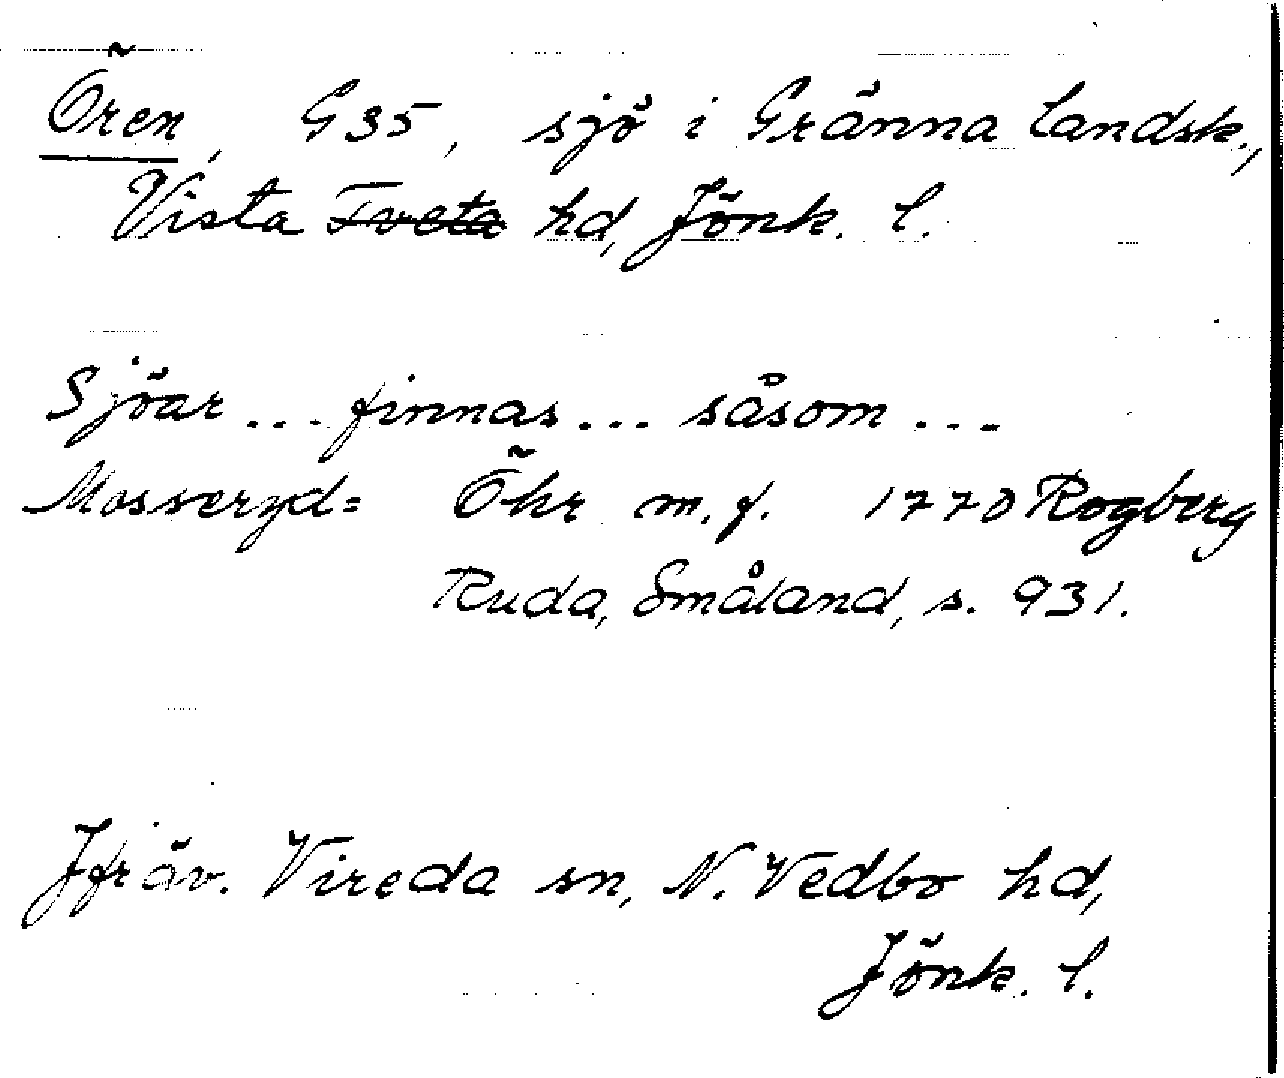 Ören, G35, sjö i Gränna landsk.,
Vista Tveta hd, Jönk. l.
Sjöar ... finnas ... såsom ...
Mosseryd= Öhr m.f. 1770 Rogberg
Ruda, Småland, s. 931.
Jfr äv. Vireda sn, N. Vedbo hd,
Jönk. l.